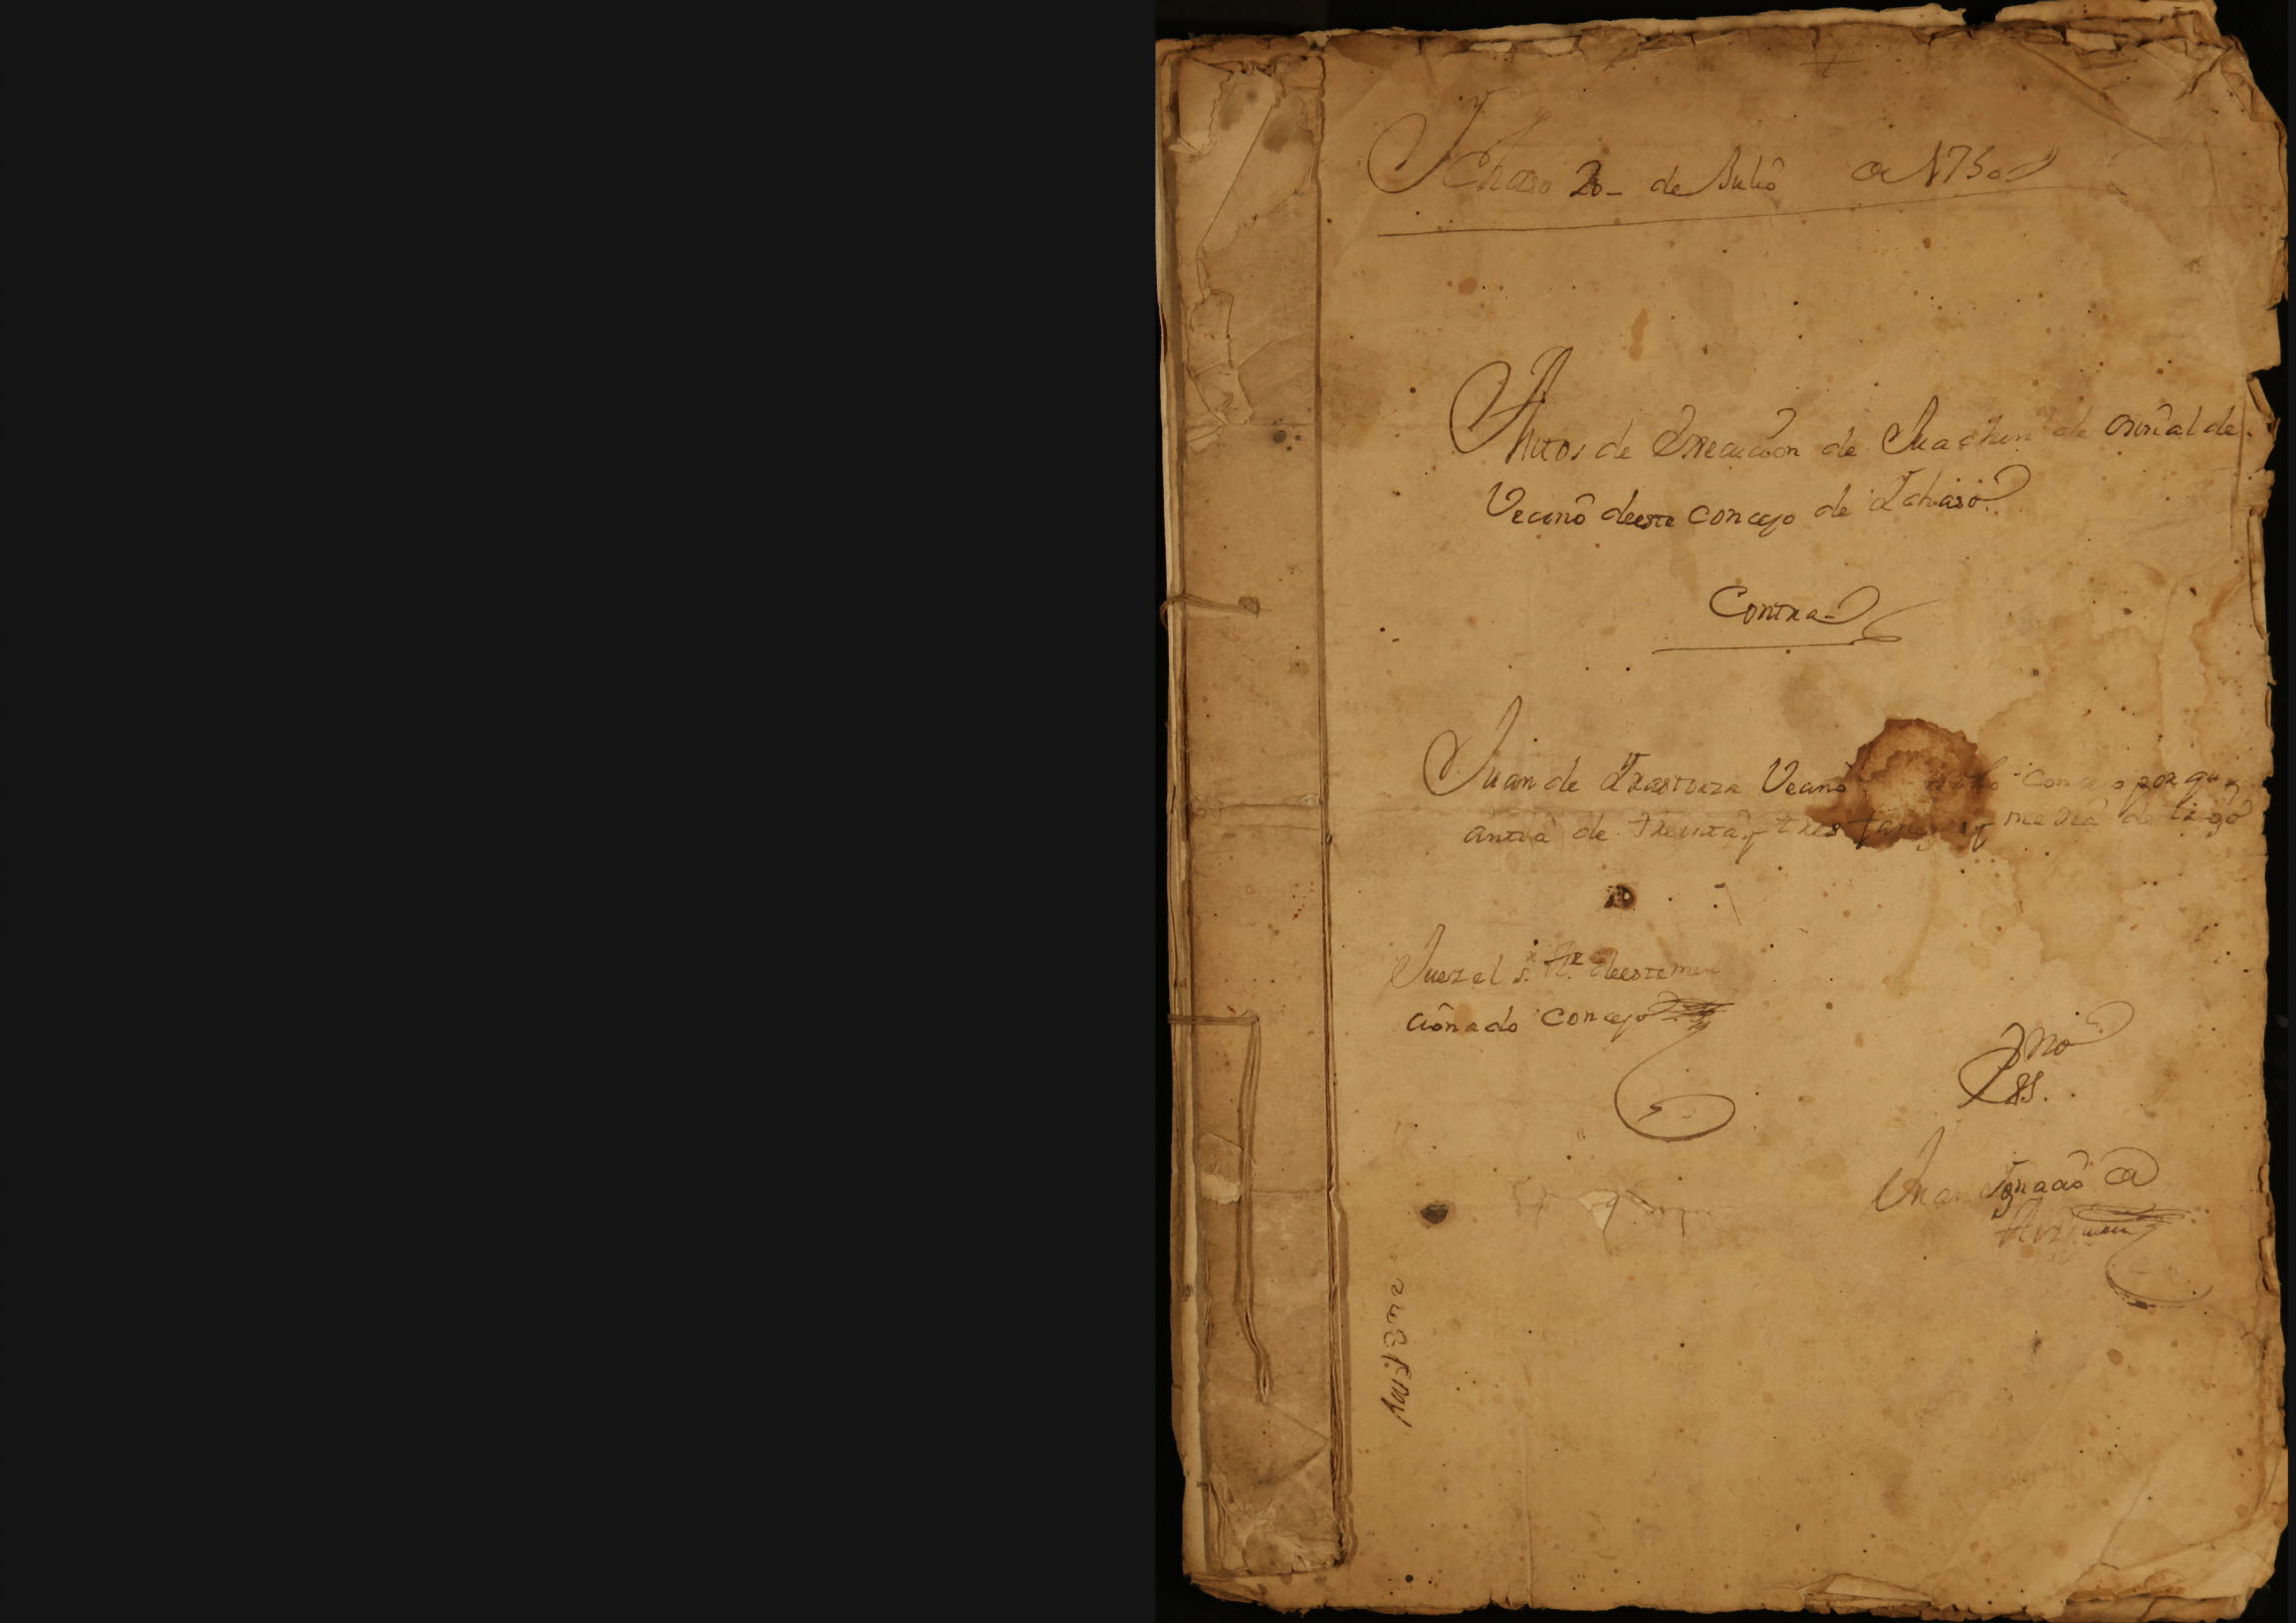 Ychaso 20 de Julio a 1750
Autos de Execucion de Juachin de oriñal de
Vecino deeste concejo de Ychaso
Contra
Juan de Yrastorza Vecino dicho Concejo por qu
antia de treinta y tres fan y media de trigo
Juez el s.r Alr. deeste men
cionado concejo
Esno
Juan Ygnacio a